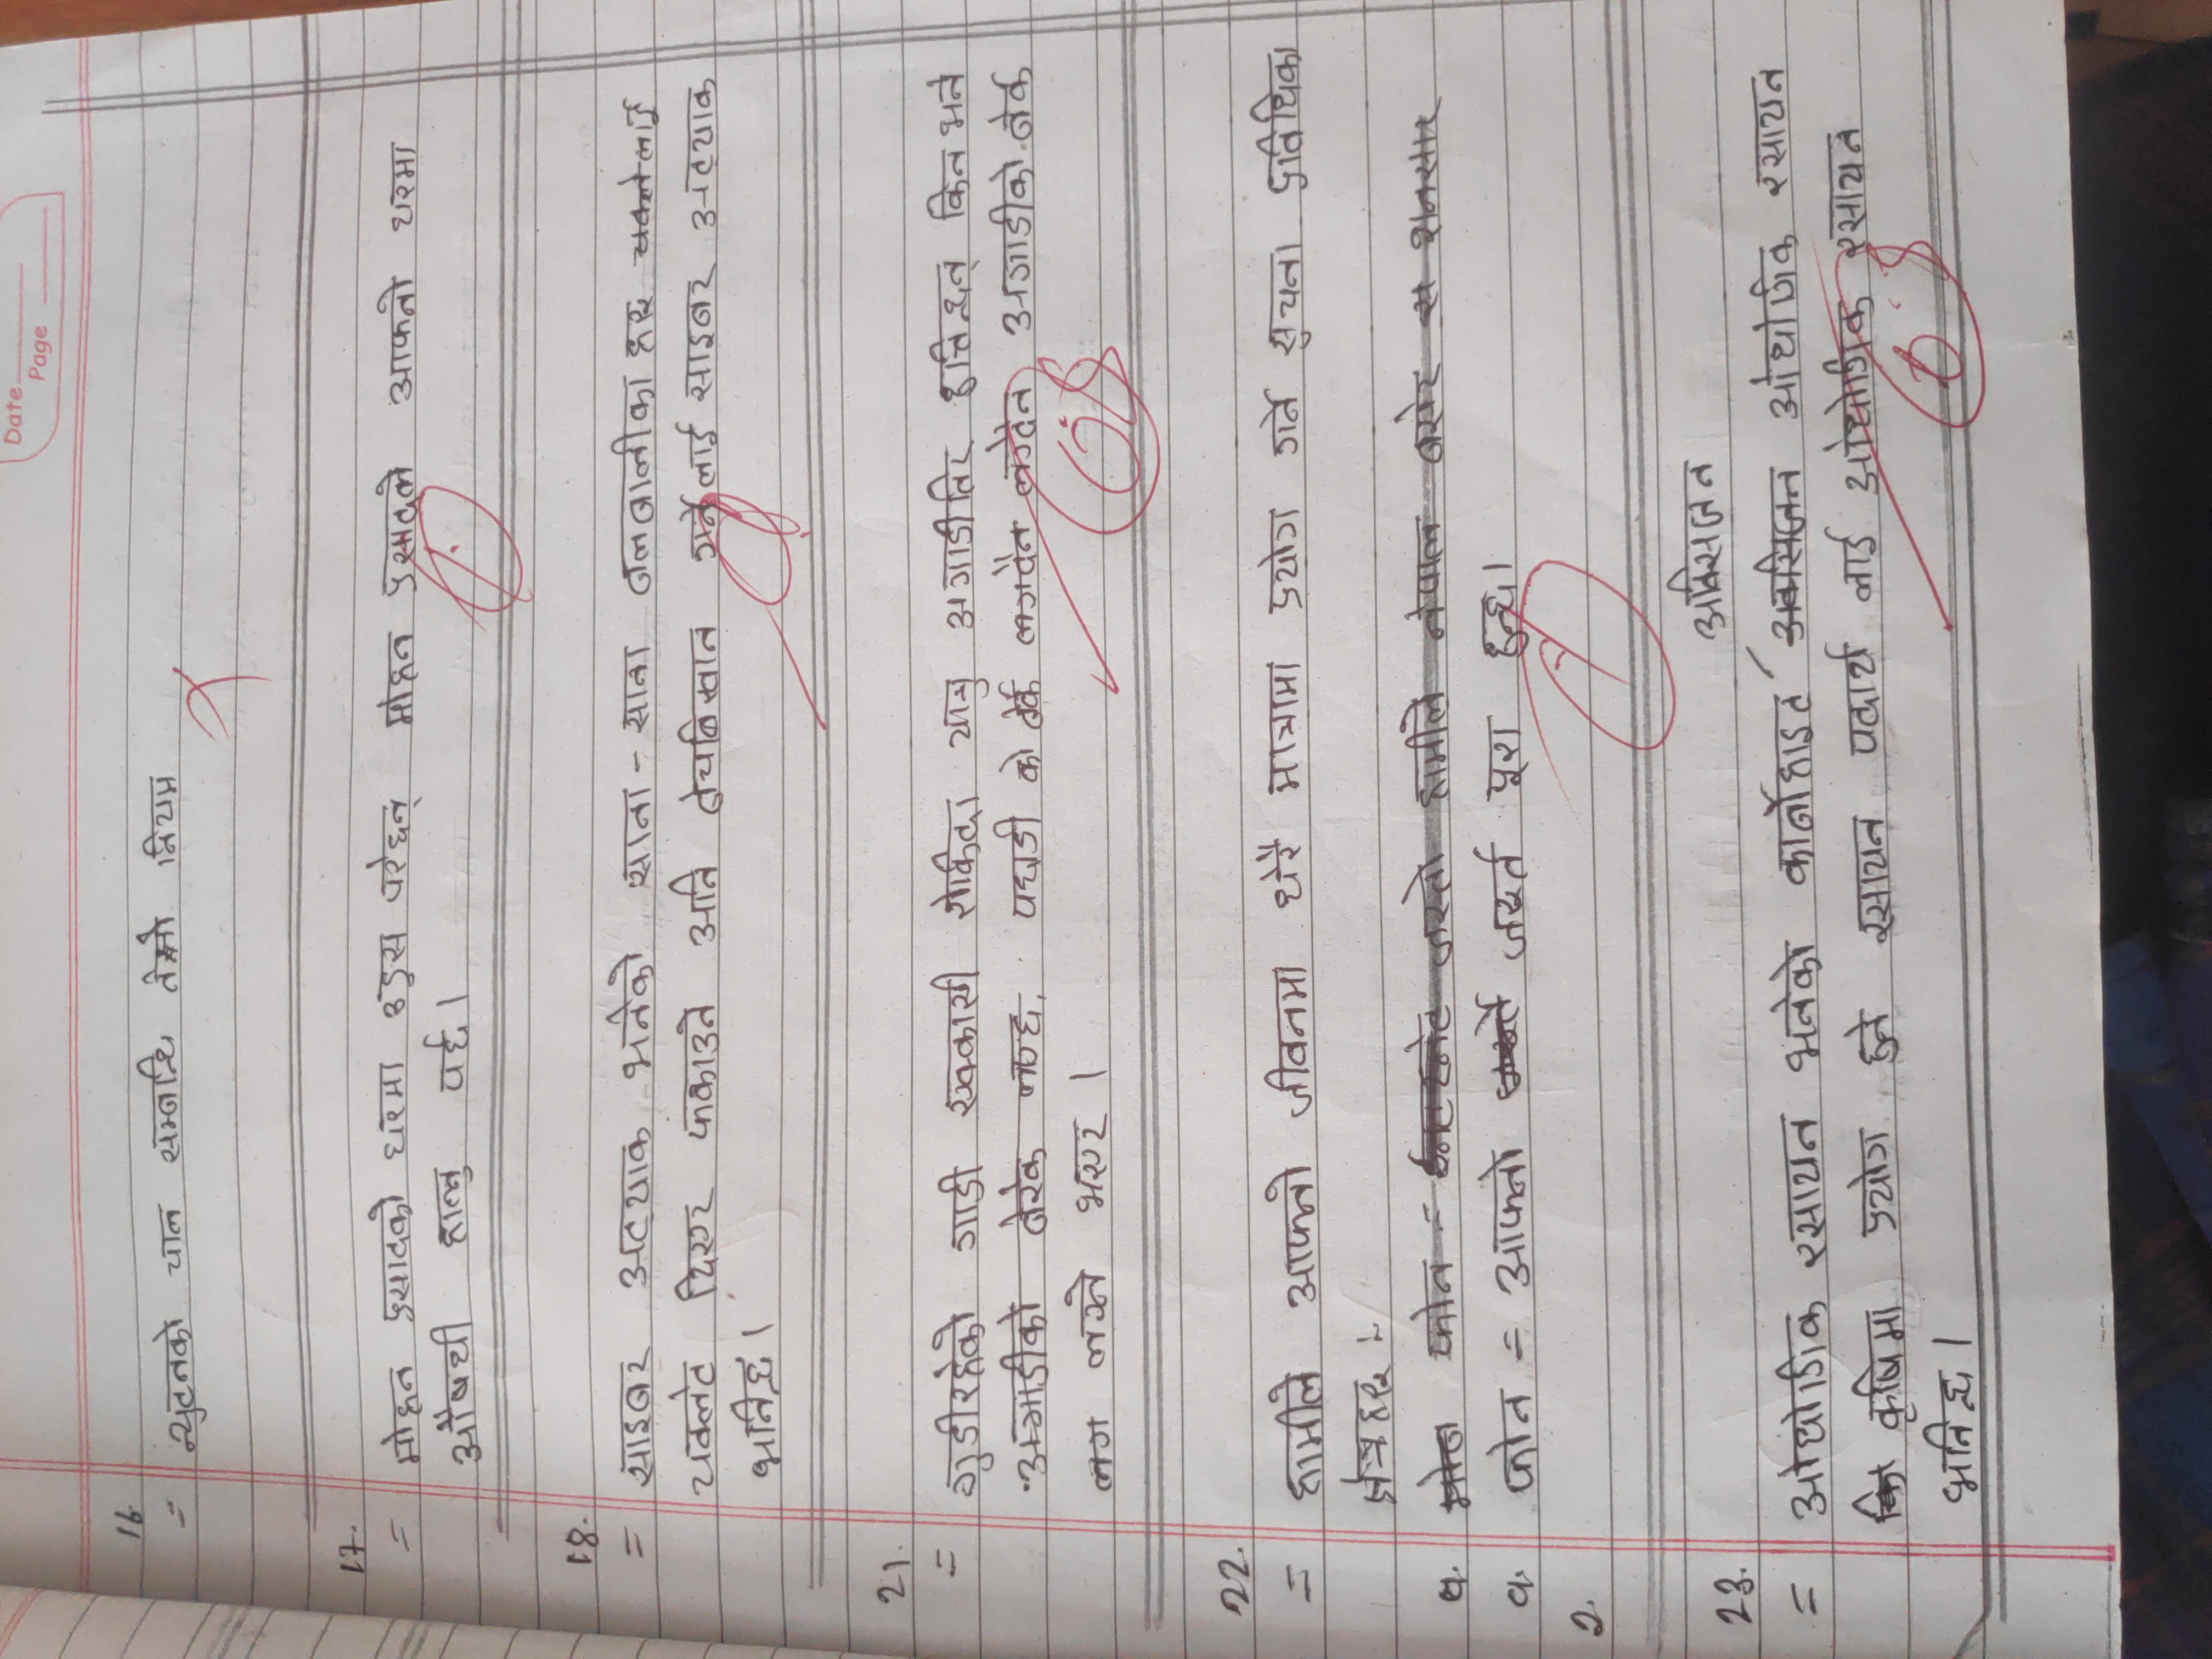 Date
Page
16.
= न्युटनको चाल सम्बन्धि तेस्रो नियम
17.
= मोहन प्रसादको घरमा उडुस परेछन् मोहन प्रसादले आफ्नो घरमा
औषधी हाल्नु पर्छ।
18.
= साइबर अट्याक भनेको साना-साना बालबालीका हरू चक्लेलाई
चक्लेट दिएर फकाउने अनि बेचबिखान गर्नेलाई साइबर अट्याक
भनिन्छ।
21.
= गुडीरहेको गाडी एक्कासी रोकिदा यात्रु अगाडीतिर हुत्तिन्छन् किन भने
अगाडीको बेरेक लाग्छ, पछाडी को बेर्क लगदैन लग्दैन अगाडीको बेर्क
लग लग्ने भएर।
22.
= हामीले आफ्नो जीवनमा धेरै मात्रामा प्रयोग गर्ने सुचना प्रविधिका
क्षेत्रहरू :-
१. फोन = ईनटरनेट जस्तो हामीले नेपाल बसेर स
१. फोन = आफ्नो जरूर्त पूरा हुन्छ।
२.
23. अक्सिजन
= ओधोगिक रसायन भनेको कार्बोहाइट अक्सिजन ओधोगिक रसायन
कि कृषिमा प्रयोग हुने रसायन पदार्थ लाई ओधोगिक रसायन
भनिन्छ।